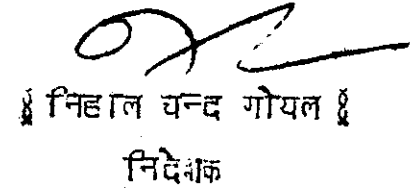 § निहाल चन्द गोयल §
निदेशक